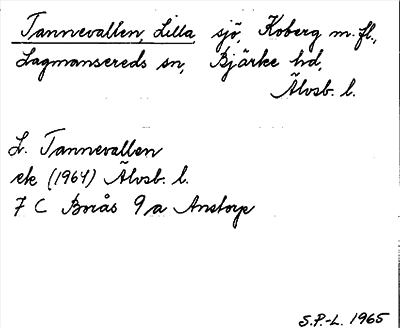 Tannevallen, Lilla sjö, Koberg m. fl.,
Lagmansereds sn, Bjärke hd,
Älvsb. l.
L. Tannevallen
ek (1964) Älvsb. l.
7 C Borås 9 a Anstorp
S.P.-L. 1965